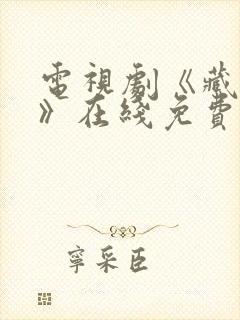 電視劇《藏
》在綫免費
寧采臣